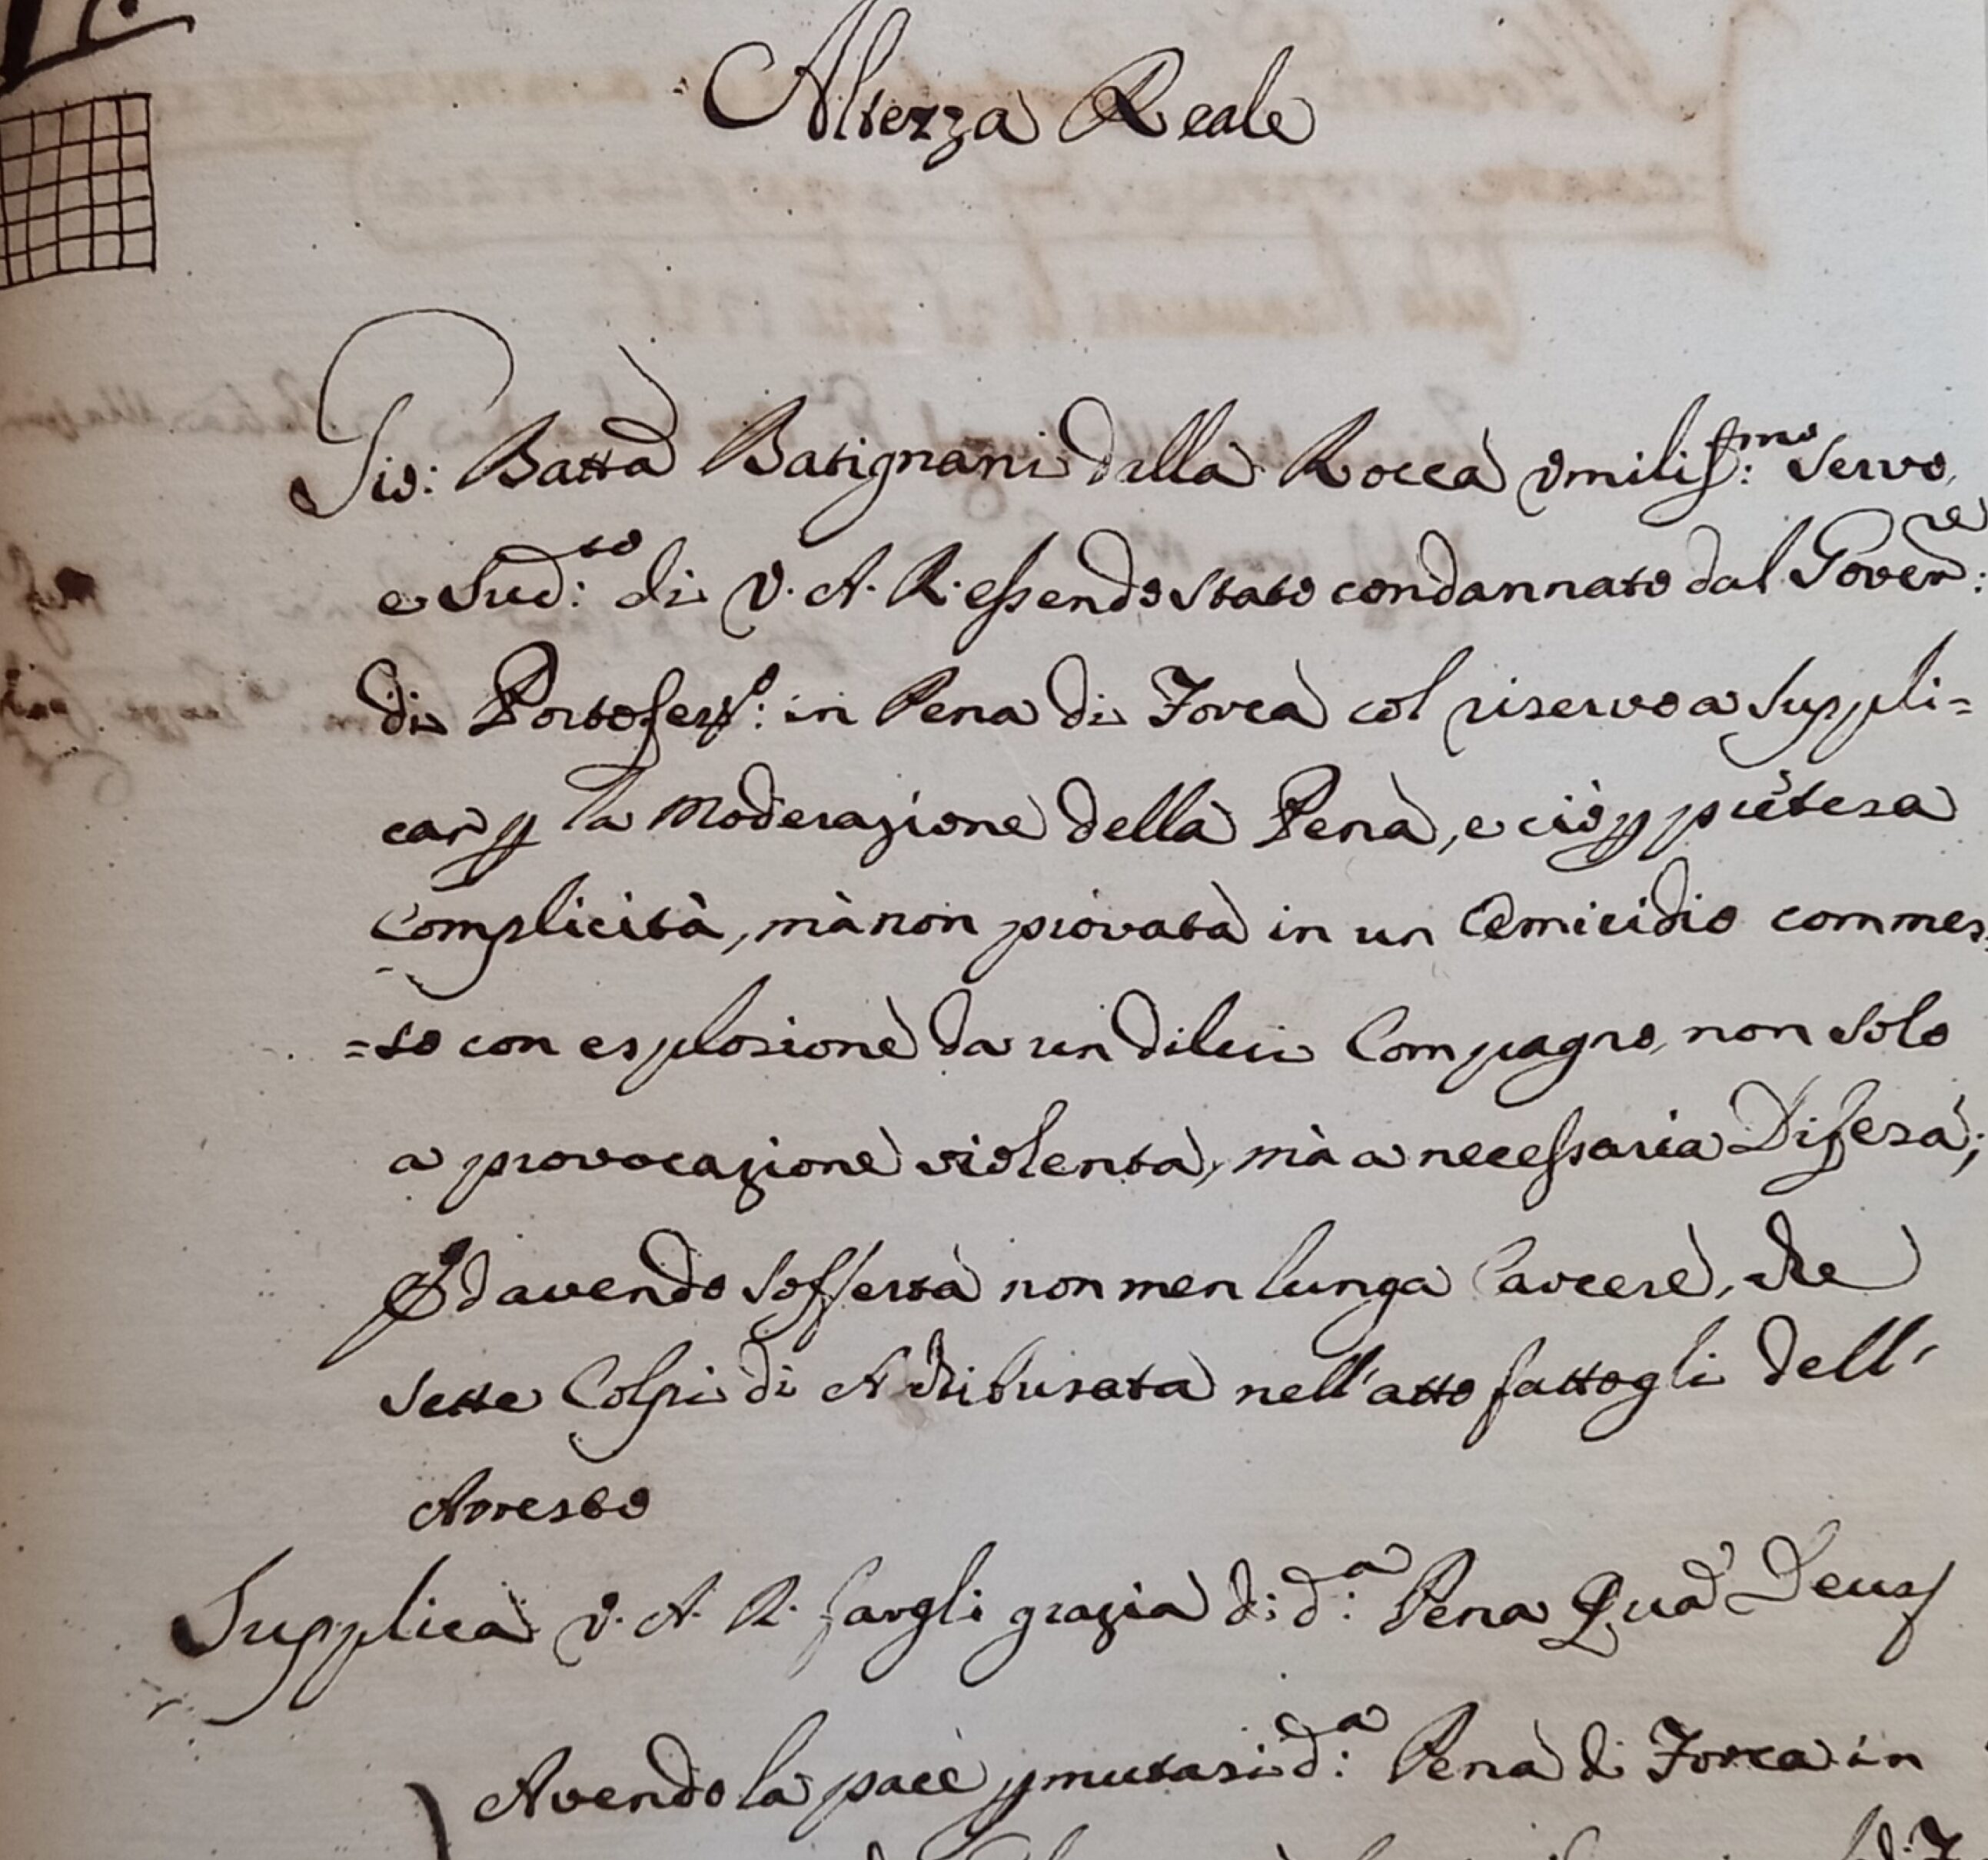 Altezza Reale
Gio: Batta Batignani della Rocca Umiliss:mo Servo,
e Sud:to di V. A. R. essendo stato condannato dal Gover:re
di Portoferr:o in Pena di Forca col riservo a suppli=
car p la Moderazione della Pena, e ciò p pretesa
Complicità, mà non provata in un Omicidio commes=
=so con esplosione da un di lui Compagno, non solo
a provocazione violenta, mà a necessaria Difesa;
Ed avendo sofferta non men lunga Carcere, che
sette Colpi di Archibusata nell'atto fattogli dell'
Arresto
Supplica V. A. R. fargli grazia di d:a Pena Quam Deus
Avendo la pace pmutasi d:a Pena di Forca in